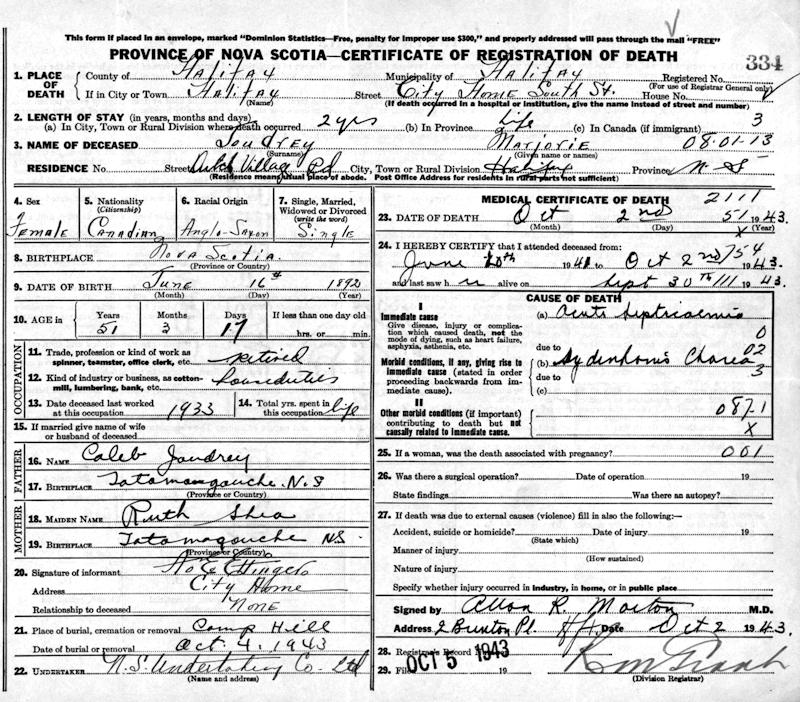 This form if placed in an envelope, marked "Dominion Statistics—Free, penalty for improper use $300," and properly addressed will pass through the mail "FREE"
PROVINCE OF NOVA SCOTIA—CERTIFICATE OF REGISTRATION OF DEATH
334
1. PLACE OF DEATH County of Halifax Municipality of Halifax Registered No.
(For use of Registrar General only)
If in City or Town Halifax Street City Home South St. House No.
(Name) (If death occurred in a hospital or institution, give the name instead of street and number)
2. LENGTH OF STAY (in years, months and days) 3
(a) In City, Town or Rural Division where death occurred 2 yrs (b) In Province life (c) In Canada (if immigrant)
3. NAME OF DECEASED Joudrey Marjorie 08-01-13
(Surname) (Given name or names)
RESIDENCE No. Street Dutch Village Rd City, Town or Rural Division Halifax Province N S
(Residence means usual place of abode. Post Office Address for residents in rural parts not sufficient)
4. Sex Female
5. Nationality (Citizenship) Canadian
6. Racial Origin Anglo-Saxon
7. Single, Married, Widowed or Divorced (write the word) Single
8. BIRTHPLACE Nova Scotia
(Province or Country)
9. DATE OF BIRTH June 16th 1892
(Month) (Day) (Year)
10. AGE in Years 51 Months 3 Days 17 If less than one day old hrs. or min.
OCCUPATION
11. Trade, profession or kind of work as spinner, teamster, office clerk, etc. retired
12. Kind of industry or business, as cotton-mill, lumbering, bank, etc. houseduties
13. Date deceased last worked at this occupation 1933 14. Total yrs. spent in this occupation life
15. If married give name of wife or husband of deceased
FATHER
16. NAME Caleb Joudrey
17. BIRTHPLACE Tatamagouche N.S
(Province or Country)
MOTHER
18. MAIDEN NAME Ruth Shea
19. BIRTHPLACE Tatamagouche N.S.
(Province or Country)
20. Signature of informant
Address City Home
Relationship to deceased None
21. Place of burial, cremation or removal Camp Hill
Date of burial or removal Oct. 4. 1943
22. UNDERTAKER N.S. Undertaking Co. Ltd
(Name and address)
MEDICAL CERTIFICATE OF DEATH 2111
23. DATE OF DEATH Oct 2nd 51 1943.
(Month) (Day) X (Year)
24. I HEREBY CERTIFY that I attended deceased from:
June 10th 1941 to Oct 2nd 754 1943.
and last saw h er alive on Sept 30th 111 1943.
CAUSE OF DEATH
I
Immediate cause
Give disease, injury or complication which caused death, not the mode of dying, such as heart failure, asphyxia, asthenia, etc.
(a) Acute Septicaemia
0
due to 02
Morbid conditions, if any, giving rise to immediate cause (stated in order proceeding backwards from immediate cause).
(b) Sydenham's Chorea
due to 3
(c)
II
Other morbid conditions (if important) contributing to death but not causally related to immediate cause.
087-1
X
25. If a woman, was the death associated with pregnancy? 001
26. Was there a surgical operation? Date of operation 19
State findings Was there an autopsy?
27. If death was due to external causes (violence) fill in also the following:—
Accident, suicide or homicide? Date of injury 19
(State which)
Manner of injury
(How sustained)
Nature of injury
Specify whether injury occurred in industry, in home, or in public place
Signed by Allan R. Morton M.D.
Address 2 Brunton Pl. Hfx. Date Oct 2 1943.
28. Registrar's Record Number
29. Filed OCT 5 1943 19
(Division Registrar)